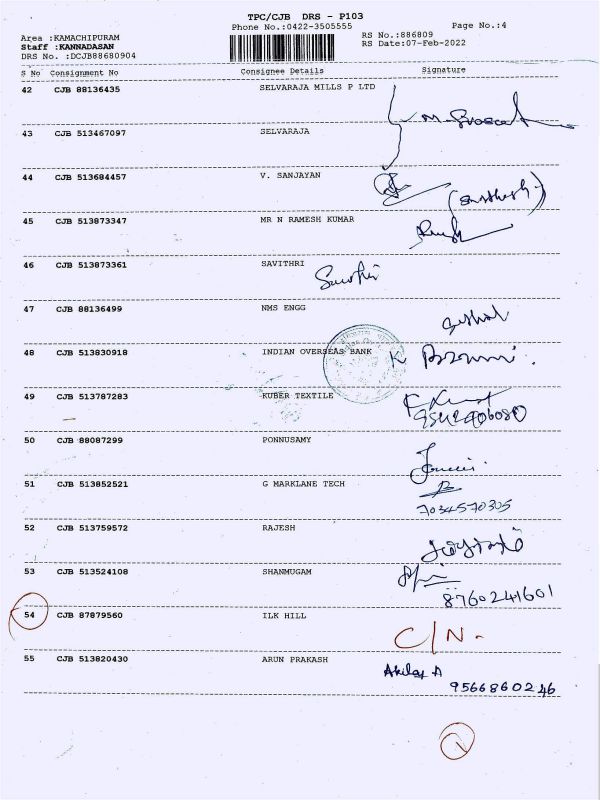 TPC/CJB DRS - P103
Phone No.:0422-3505555
Page No.:4
Area :KAMACHIPURAM
RS No.:886809
Staff :KANNADASAN
RS Date:07-Feb-2022
DRS No. :DCJB88680904
S No Consignment No Consignee Details Signature
42 CJB 88136435 SELVARAJA MILLS P LTD
43 CJB 513467097 SELVARAJA
44 CJB 513684457 V. SANJAYAN
45 CJB 513873347 MR N RAMESH KUMAR
46 CJB 513873361 SAVITHRI
47 CJB 88136499 NMS ENGG
48 CJB 513830918 INDIAN OVERSEAS BANK
49 CJB 513787283 KUBER TEXTILE
50 CJB 88087299 PONNUSAMY
51 CJB 513852521 G MARKLANE TECH
7034570305
52 CJB 513759572 RAJESH
53 CJB 513524108 SHANMUGAM
8760241601
54 CJB 87879560 ILK HILL C/N.
55 CJB 513820430 ARUN PRAKASH
9566860246